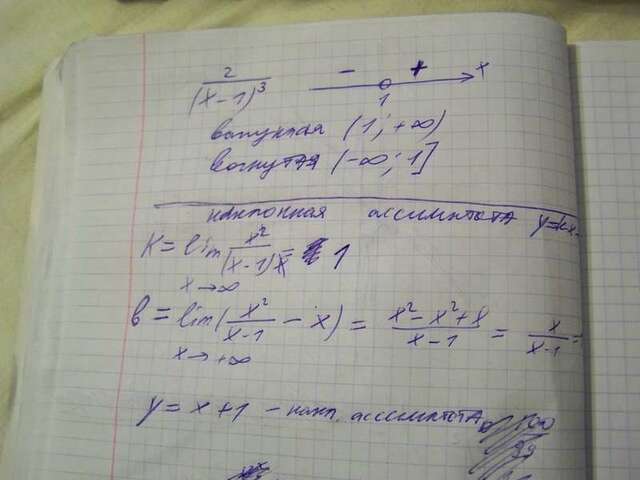 2/(x-1)³ - + x
1
выпуклая (1; +∞)
вогнутая (-∞; 1]
наклонная ассимптота y=kx
K = lim x²/((x-1)x) = 1
x→∞
b = lim (x²/(x-1) - x) = (x²-x²+x)/(x-1) = x/(x-1) =
x→+∞
y = x+1 - накл. ассимптота